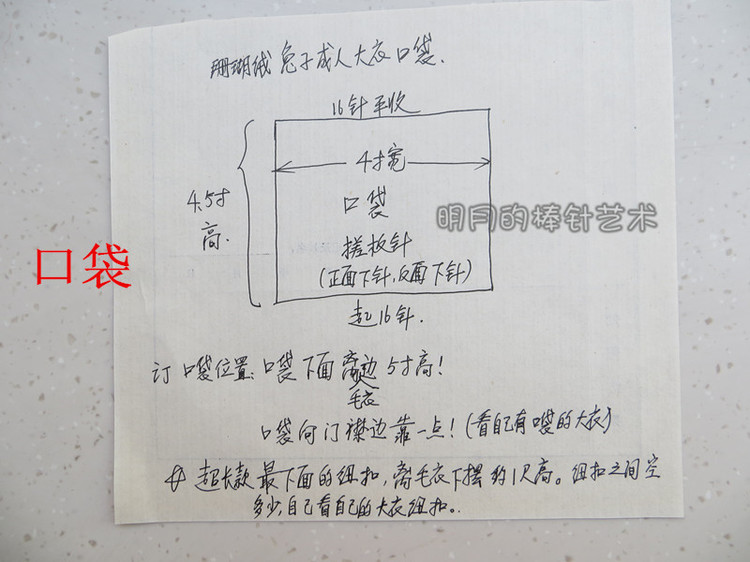 珊瑚绒兔子成人大衣口袋.
16针平收
4寸宽
4.5寸
高.
口袋
明月的棒针艺术
搓板针
口袋
(正面下针,反面下针)
起16针.
订口袋位置:口袋下面离边5寸高!
毛衣
口袋向门襟边靠一点!(看自己有口袋的大衣)
超长款最下面的纽扣,离毛衣下摆约1尺高。纽扣之间空
多少,自己看自己的大衣纽扣。